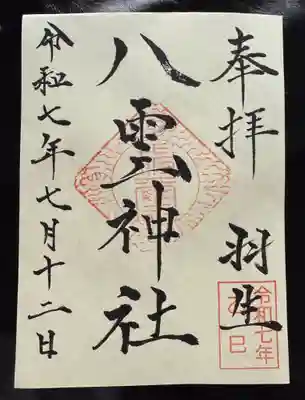 奉拝
羽生
令和七年
乙巳
八雲神社
令和七年七月十二日